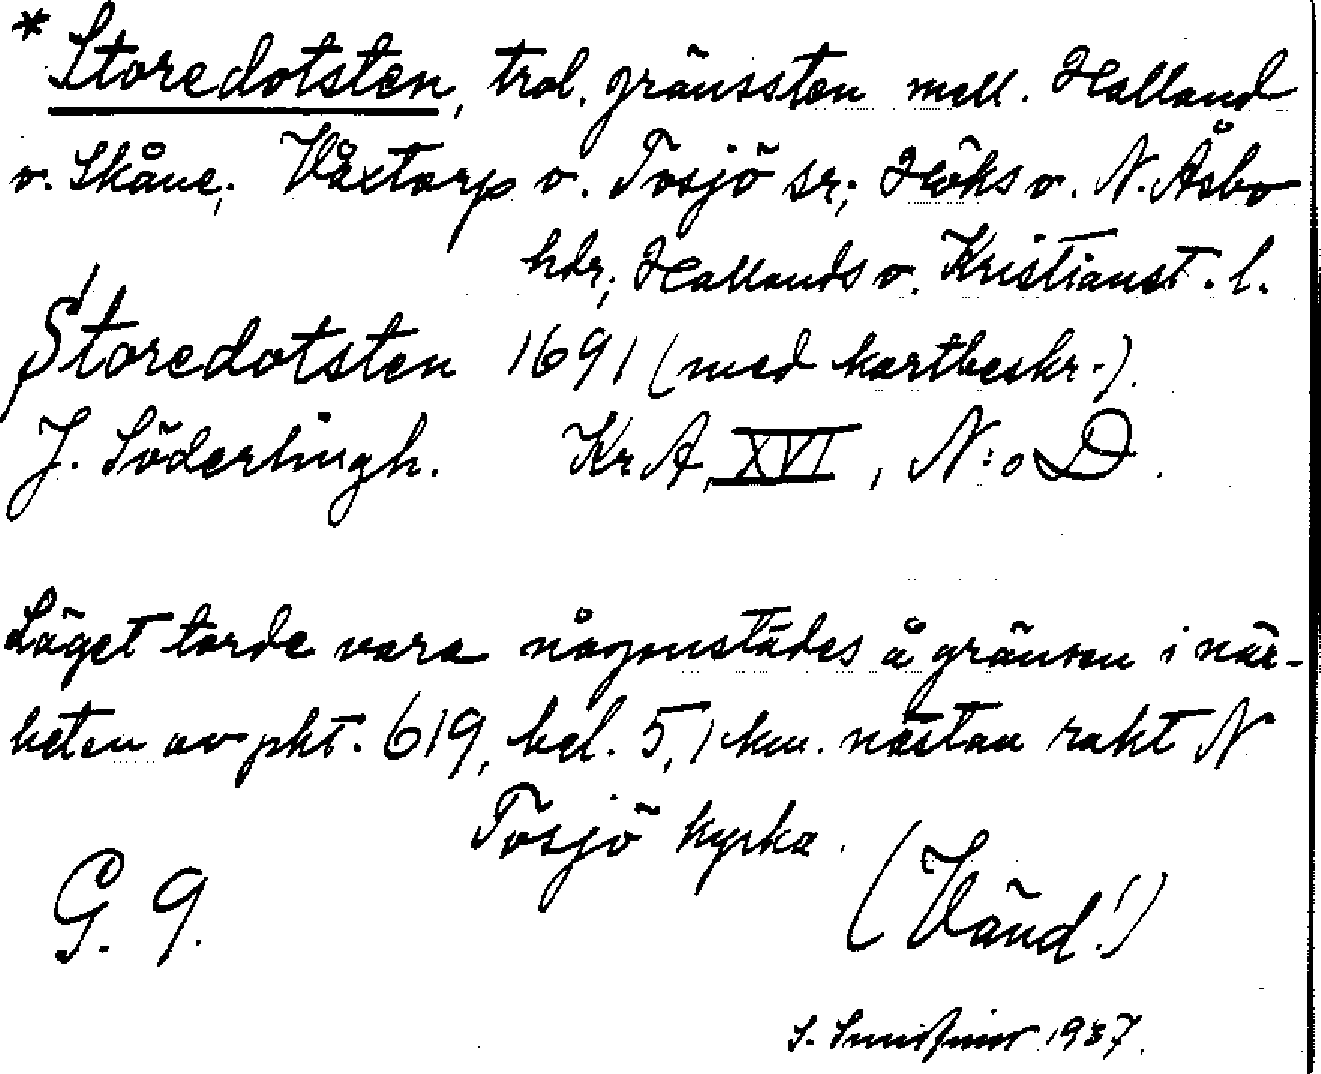 * Storedotsten, trol. gränssten mell. Halland
o. Skåne; Våxtorp o. Tosjö sr; Höks o. N. Åsbo
hdr; Hallands o. Kristianst. l.
Storedotsten 1691 (med kartbeskr.).
J. Söderlingh. KrA, XVI, N:o D.
Läget torde vara någonstädes å gränsen i när-
heten av pkt. 619, bel. 5,1 km. nästan rakt N
Tosjö kyrka.
G. 9. (Vänd!)
S. 1937.